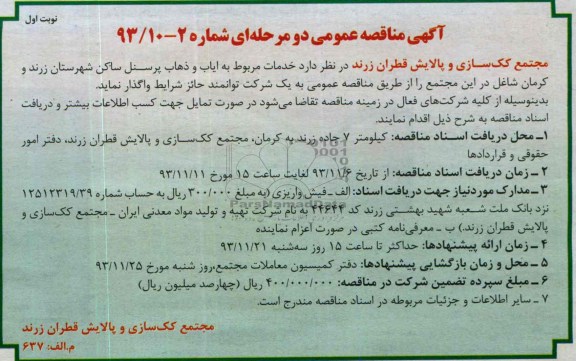 نوبت اول
آگهی مناقصه عمومی دو مرحله‌ای شماره ۲-۹۳/۱۰
مجتمع کک‌سازی و پالایش قطران زرند در نظر دارد خدمات مربوط به ایاب و ذهاب پرسنل ساکن شهرستان زرند و
کرمان شاغل در این مجتمع را از طریق مناقصه عمومی به یک شرکت توانمند حائز شرایط واگذار نماید.
بدینوسیله از کلیه شرکت‌های فعال در زمینه مناقصه تقاضا می‌شود در صورت تمایل جهت کسب اطلاعات بیشتر و دریافت
اسناد مناقصه به شرح ذیل اقدام نمایند.
۱ـ محل دریافت اسناد مناقصه: کیلومتر ۷ جاده زرند به کرمان، مجتمع کک‌سازی و پالایش قطران زرند، دفتر امور
حقوقی و قراردادها
۲ ـ زمان دریافت اسناد مناقصه: از تاریخ ۹۳/۱۱/۶ لغایت ساعت ۱۵ مورخ ۹۳/۱۱/۱۱
۳ ـ مدارک موردنیاز جهت دریافت اسناد: الف ـ فیش واریزی (به مبلغ ۳۰۰/۰۰۰ ریال به حساب شماره ۱۲۵۱۲۳۱۹/۳۹
نزد بانک ملت شعبه شهید بهشتی زرند کد ۴۴۶۴۳ به نام شرکت تهیه و تولید مواد معدنی ایران ـ مجتمع کک‌سازی و
پالایش قطران زرند.) ب ـ معرفی‌نامه کتبی در صورت اعزام نماینده
۴ ـ زمان ارائه پیشنهادها: حداکثر تا ساعت ۱۵ روز سه‌شنبه ۹۳/۱۱/۲۱
۵ ـ محل و زمان بازگشایی پیشنهادها: دفتر کمیسیون معاملات مجتمع،روز شنبه مورخ ۹۳/۱۱/۲۵
۶ ـ مبلغ سپرده تضمین شرکت در مناقصه: ۴۰۰/۰۰۰/۰۰۰ ریال (چهارصد میلیون ریال)
۷ ـ سایر اطلاعات و جزئیات مربوطه در اسناد مناقصه مندرج است.
مجتمع کک‌سازی و پالایش قطران زرند
م.الف: ۶۳۷